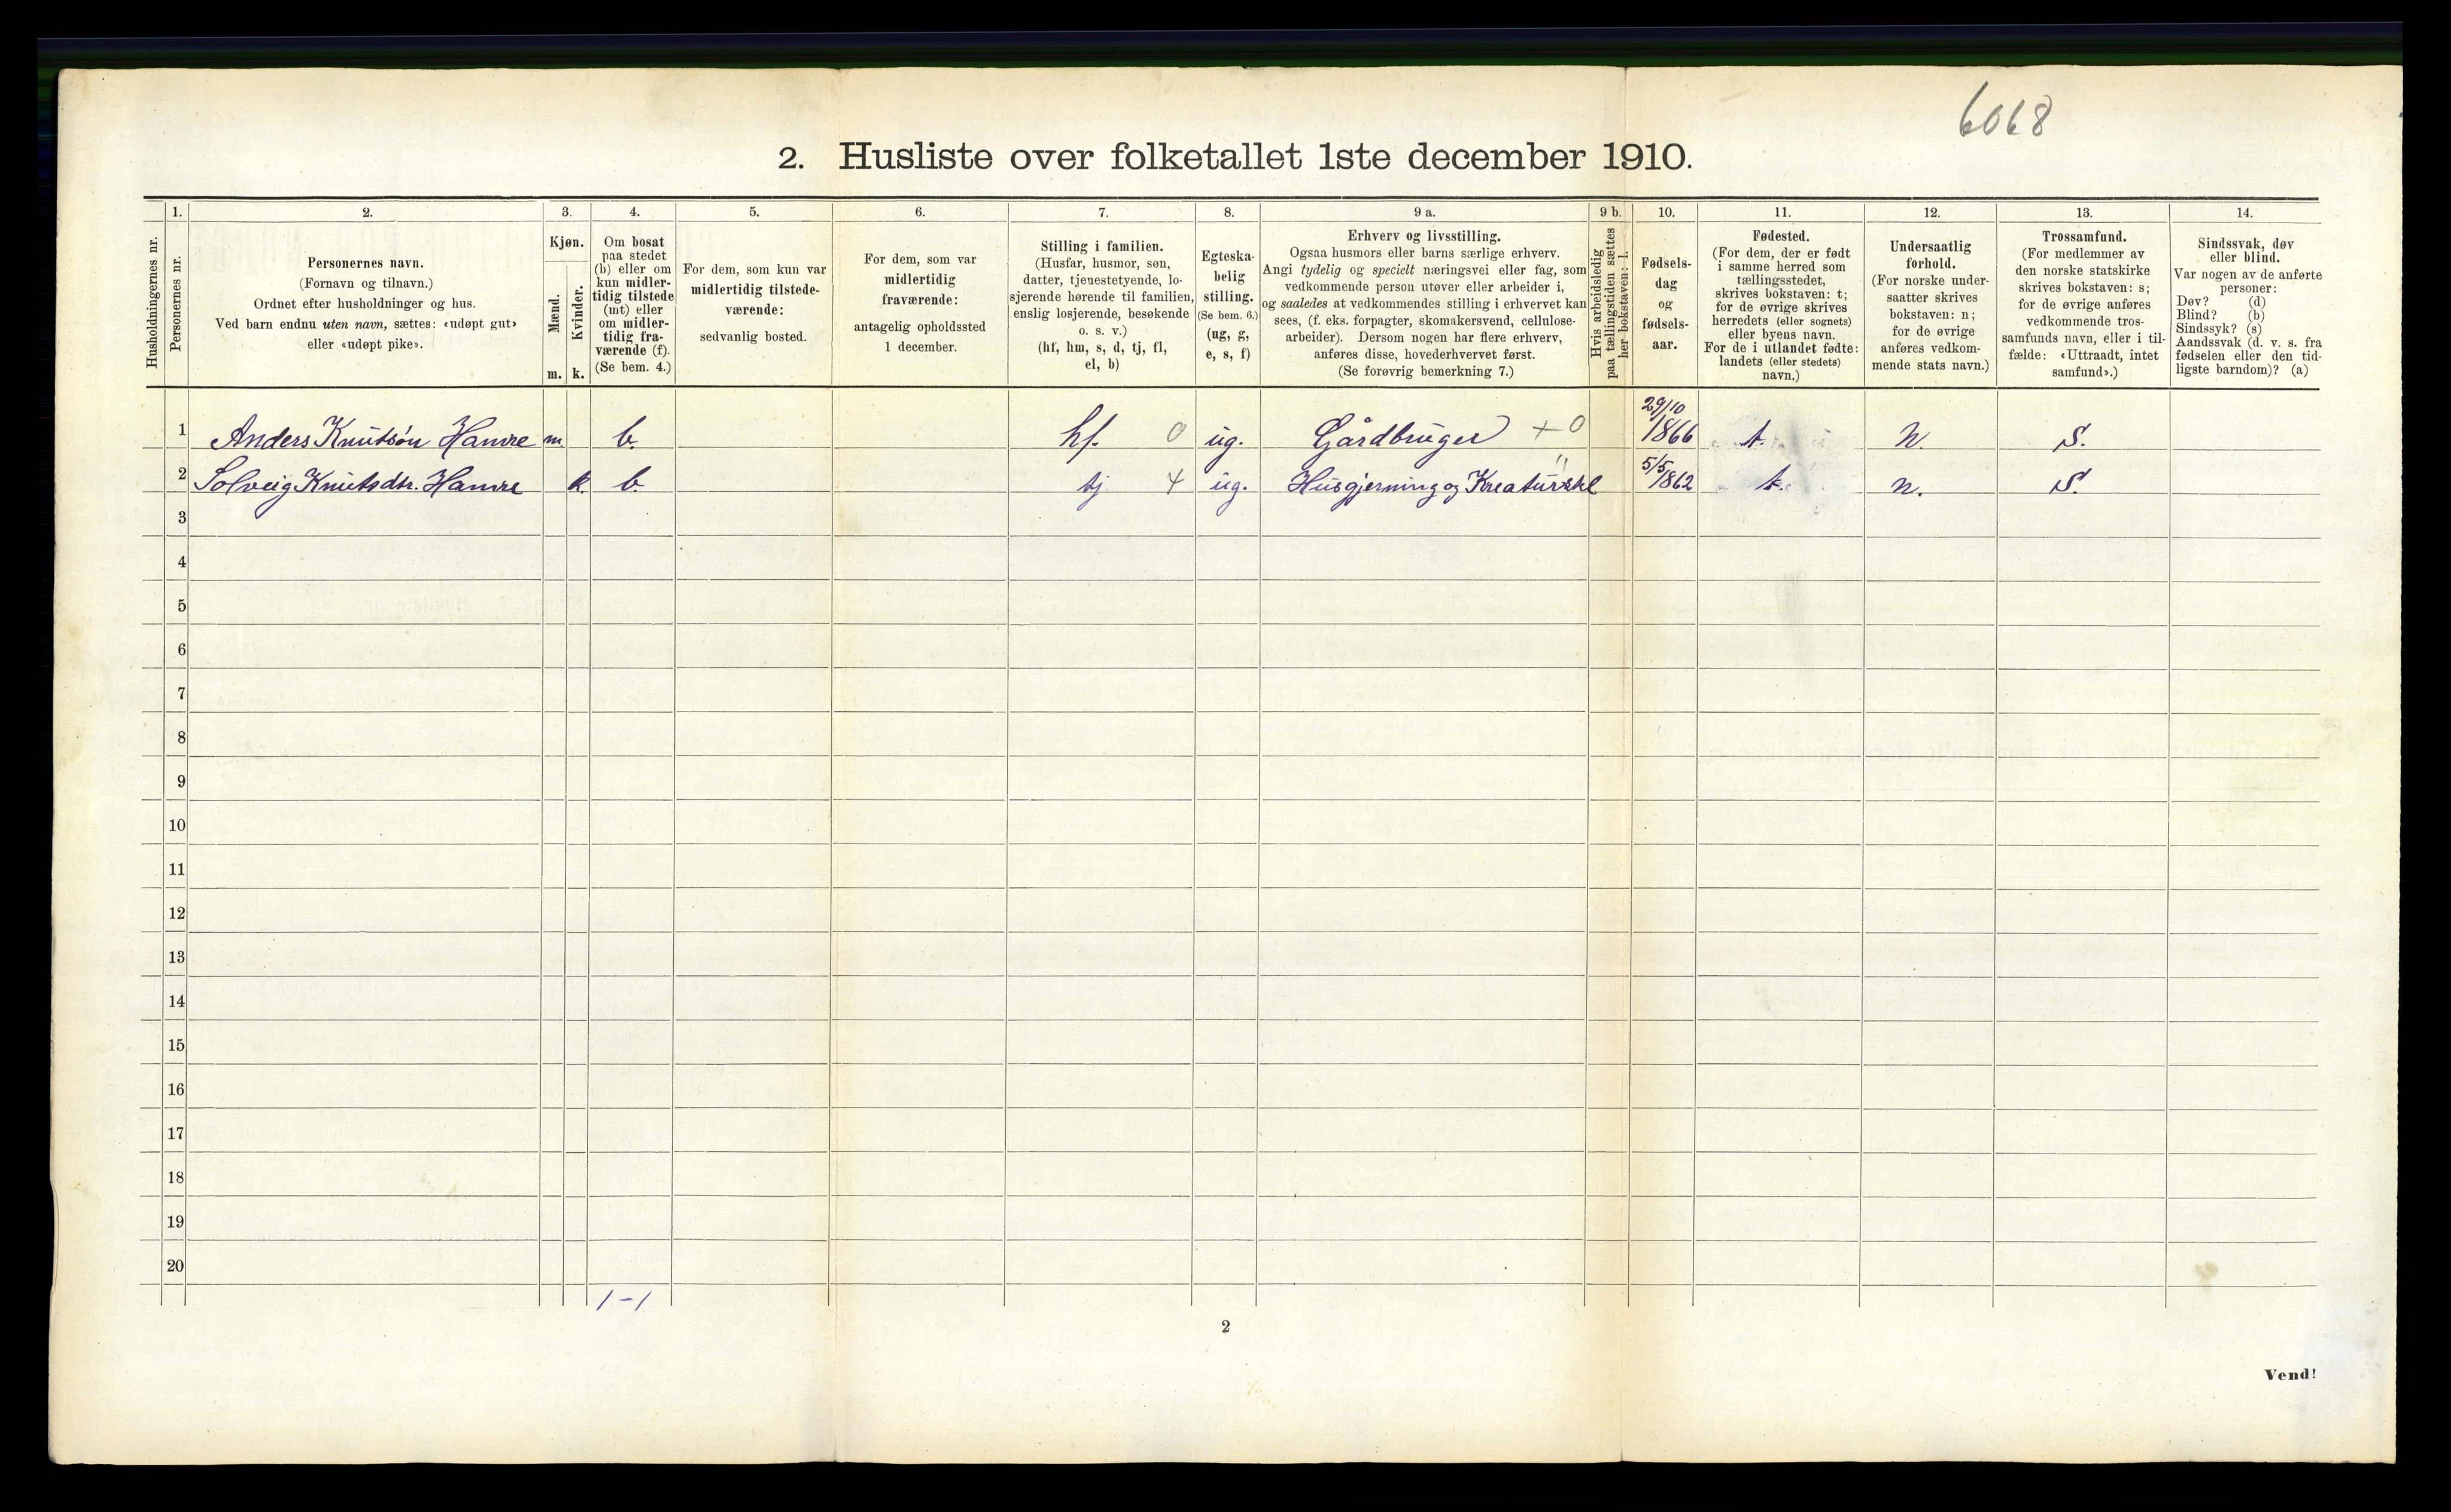 6068
2. Husliste over folketallet 1ste december 1910.
Husholdningernes nr.
1.
Personernes nr.
2.
Personernes navn.
(Fornavn og tilnavn.)
Ordnet efter husholdninger og hus.
Ved barn endnu uten navn, sættes: «udøpt gut»
eller «udøpt pike».
3.
Kjøn.
Mænd.
Kvinder.
m. k.
4.
Om bosat
paa stedet
(b) eller om
kun midler-
tidig tilstede
(mt) eller
om midler-
tidig fra-
værende (f).
(Se bem. 4.)
5.
For dem, som kun var
midlertidig tilstede-
værende:
sedvanlig bosted.
6.
For dem, som var
midlertidig
fraværende:
antagelig opholdssted
1 december.
7.
Stilling i familien.
(Husfar, husmor, søn,
datter, tjenestetyende, lo-
sjerende hørende til familien,
enslig losjerende, besøkende
o. s. v.)
(hf, hm, s, d, tj, fl,
el, b)
8.
Egteska-
belig
stilling.
(Se bem. 6.)
(ug, g,
e, s, f)
9 a.
Erhverv og livsstilling.
Ogsaa husmors eller barns særlige erhverv.
Angi tydelig og specielt næringsvei eller fag, som
vedkommende person utøver eller arbeider i,
og saaledes at vedkommendes stilling i erhvervet kan
sees, (f. eks. forpagter, skomakersvend, cellulose-
arbeider). Dersom nogen har flere erhverv,
anføres disse, hovederhvervet først.
(Se forøvrig bemerkning 7.)
9 b.
Hvis arbeidsledig
paa tællingstiden sættes
her bokstaven: l.
10.
Fødsels-
dag
og
fødsels-
aar.
11.
Fødested.
(For dem, der er født
i samme herred som
tællingsstedet,
skrives bokstaven: t;
for de øvrige skrives
herredets (eller sognets)
eller byens navn.
For de i utlandet fødte:
landets (eller stedets)
navn.)
12.
Undersaatlig
forhold.
(For norske under-
saatter skrives
bokstaven: n;
for de øvrige
anføres vedkom-
mende stats navn.)
13.
Trossamfund.
(For medlemmer av
den norske statskirke
skrives bokstaven: s;
for de øvrige anføres
vedkommende tros-
samfunds navn, eller i til-
fælde: «Uttraadt, intet
samfund».)
14.
Sindssvak, døv
eller blind.
Var nogen av de anførte
personer:
Døv? (d)
Blind? (b)
Sindssyk? (s)
Aandssvak (d. v. s. fra
fødselen eller den tid-
ligste barndom)? (a)
1 Anders Knutsøn Hamre m b. hf. 0 ug. Gårdbruger + 0 29/10 1866 t. n. S.
2 Solveig Knutsdtr. Hamre k. b. tj 4 ug. Husgjerning og Kreaturstel 5/5 1862 t. n. S.
3
4
5
6
7
8
9
10
11
12
13
14
15
16
17
18
19
20
1-1
2
Vend!